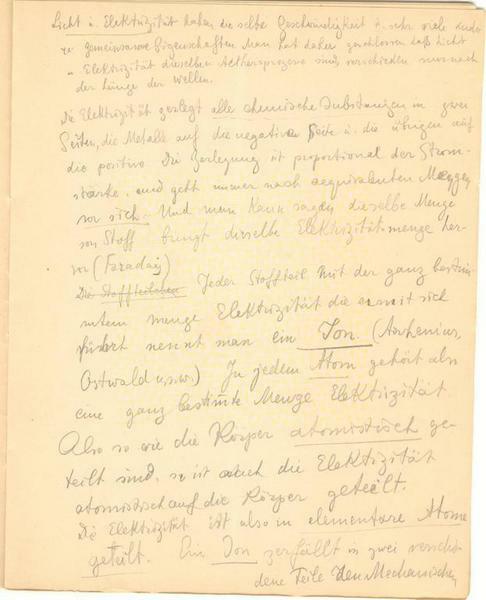 Licht u. Elektrizität haben die selbe Geschwindigkeit u. sehr viele ande
re gemeinsame Eigenschaften Man hat daher geschlossen daß Licht
u Elektrizität dieselben Aetherprozesse sind verschieden nur nach
der Länge der Wellen.
Die Elektrizität zerlegt alle chemische Substanzen in zwei
Seiten, die Metalle auf die negative Seite u. die übrigen auf
die positive. Die Zerlegung ist proportional der Strom-
stärke. und geht immer nach aequivalenten Mengen
vor sich. Und man kann sagen dieselbe Menge
von Stoff bringt dieselbe Elektrizitätmenge her-
vor (Faraday)
Die Stoffteilchen Jeder Stoffteil mit der ganz bestim-
mtem menge Elektrizität die er mit sich
führt nennt man ein Ion. (Arrhenius,
Ostwald u.s.w.) Zu jedem Atom gehört also
eine ganz bestimte Menge Elektrizität
Also so wie die Körper atomistisch ge-
teilt sind, so ist auch die Elektizität
atomistisch auf die Körper geteilt.
Die Elektrizität ist also in elementare Atome
geteilt. Ein Ion zerfällt in zwei verschie
dene Teile Den Mechanischen